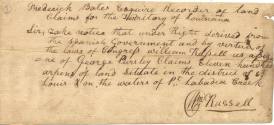 Frederick Bates Esquire Recorder of land
Claims for the Territory of Louisiana
Sir, take notice that under Right derived from
the Spanish Government and by vertue of
the laws of Congress William Russell as assig
nee of George Pursley Claims Eleven hundred
arpens of land Situate in the district of St
Louis on the waters of Labadin Creek
Wm Russell